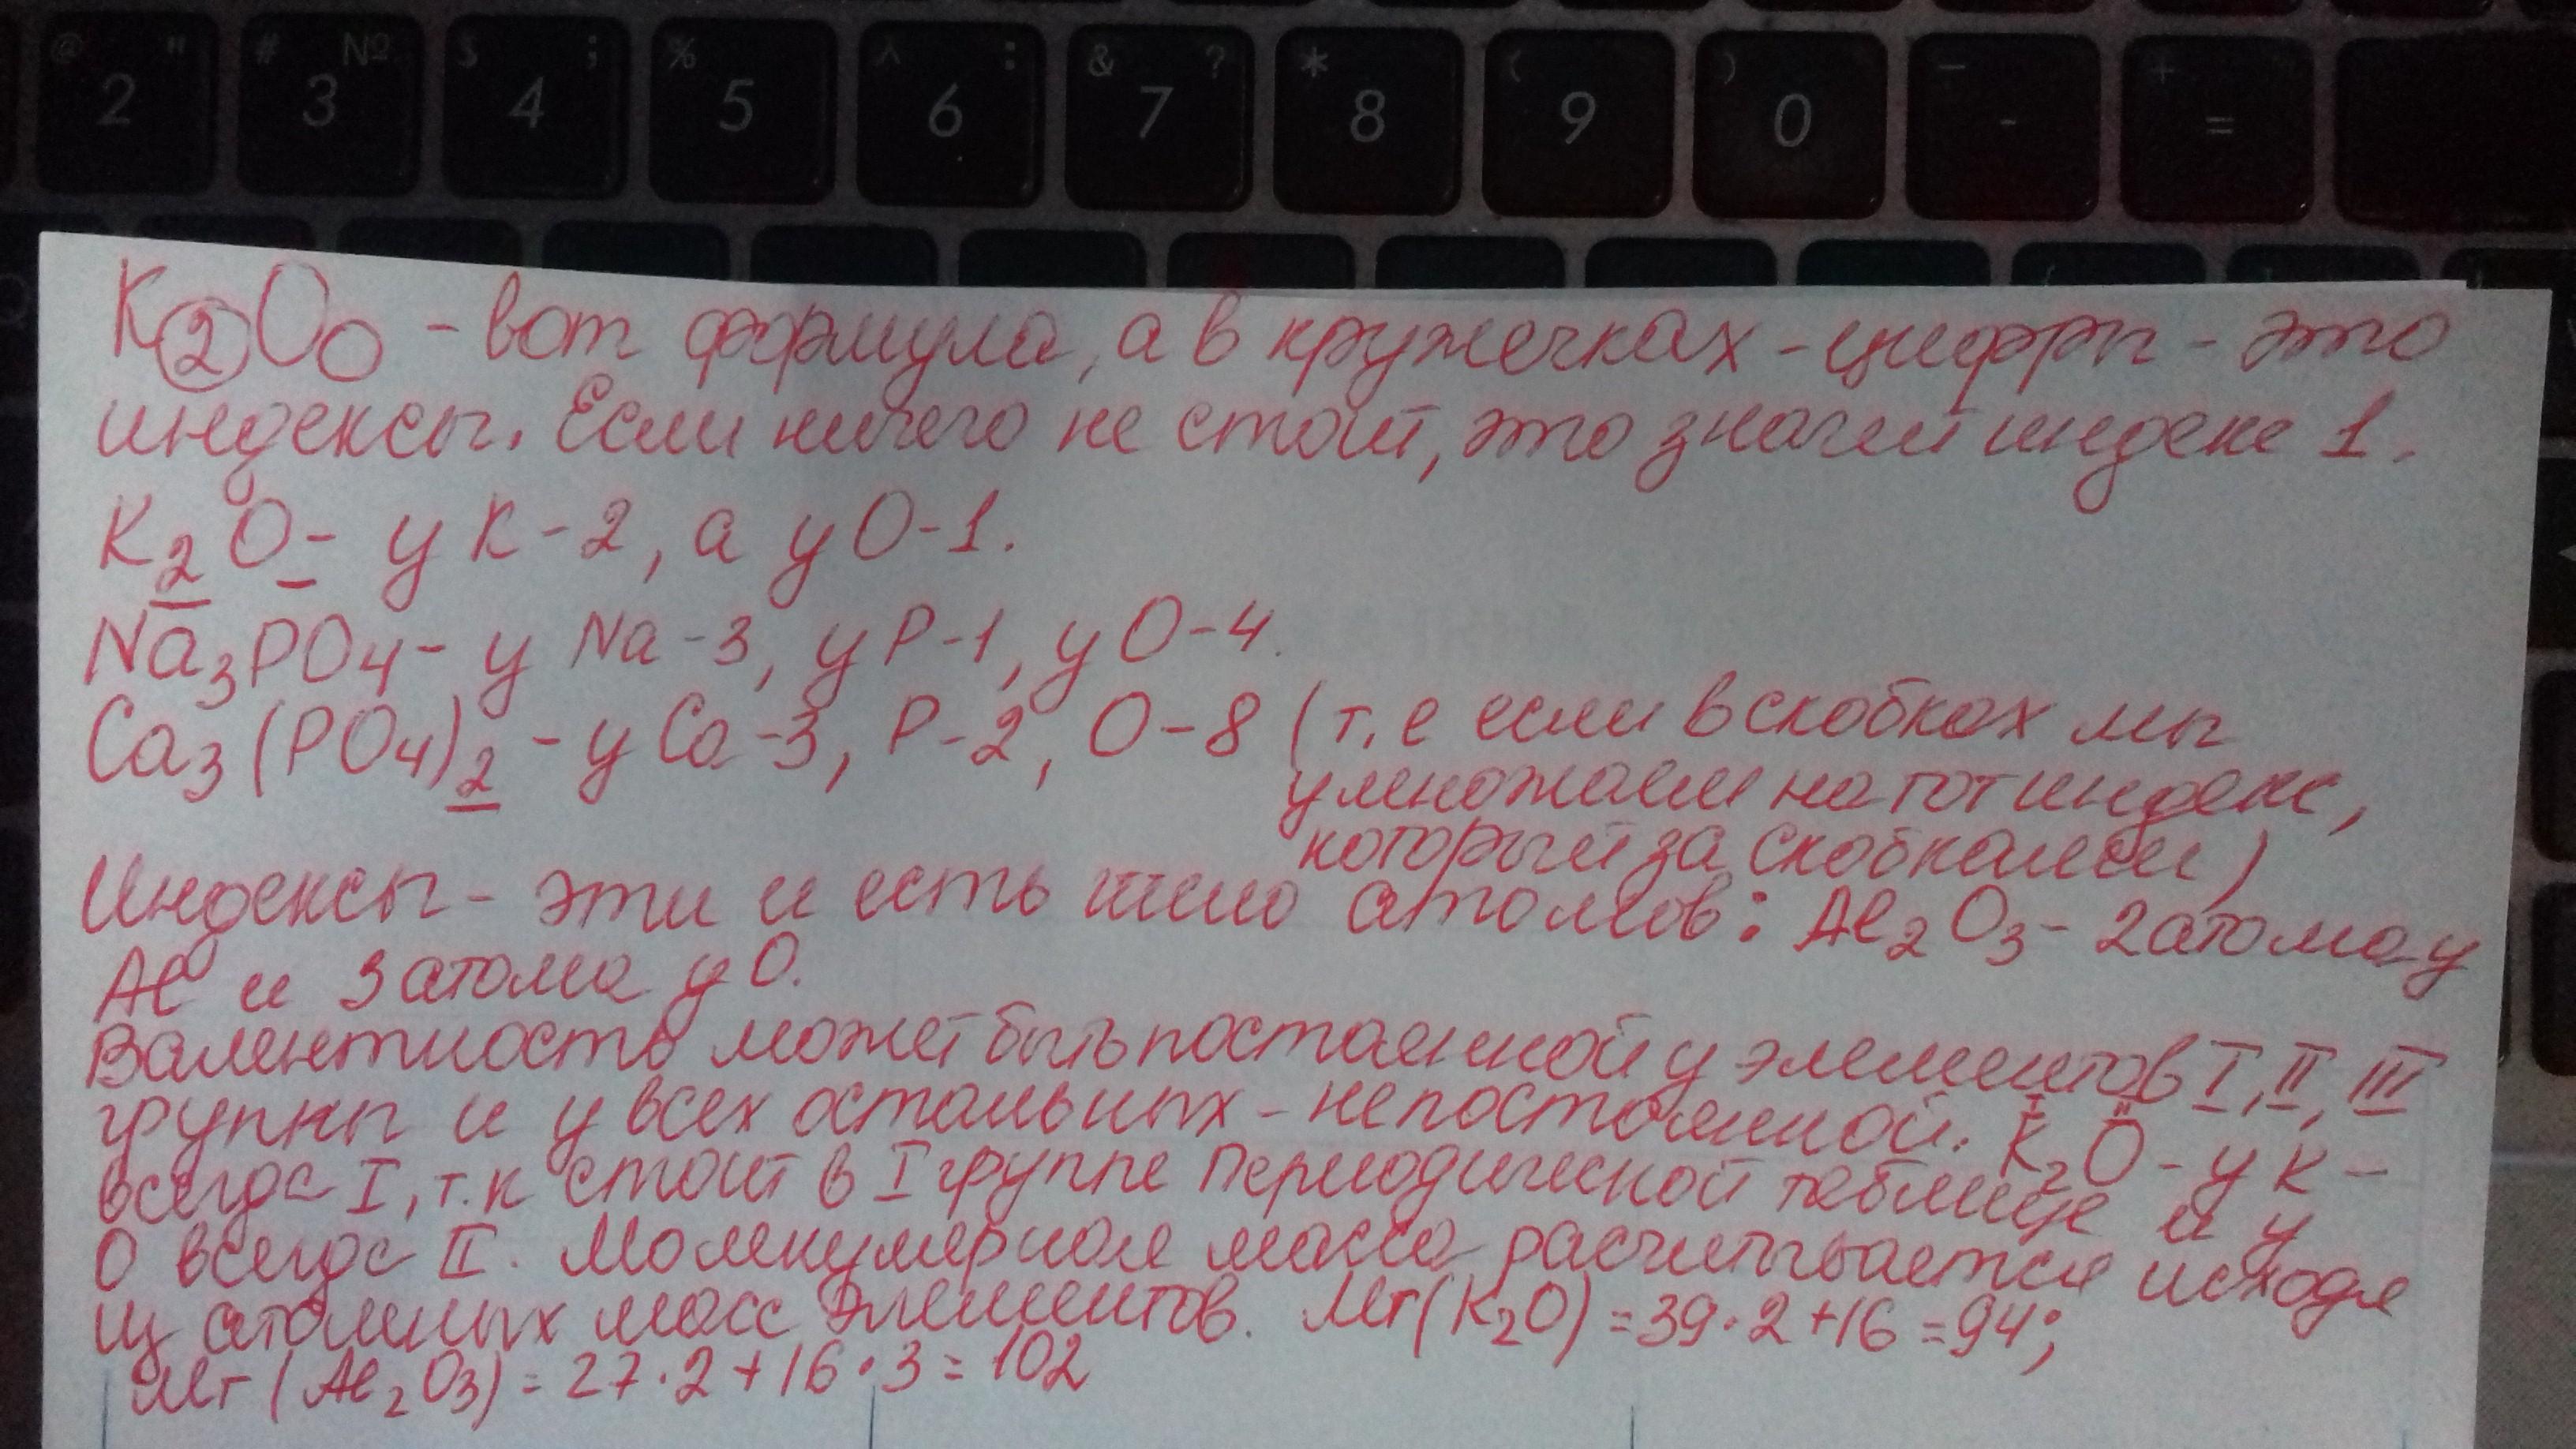 @ " # № $ ; % ^ : & ? * ( ) _ +
2 3 4 5 6 7 8 9 0 - =
K₂O – вот формула, а в кружечках – цифры – это
индексы. Если ничего не стоит, это значит индекс 1.
K₂O – у K – 2, а у O – 1.
Na₃PO₄ – у Na – 3, у P – 1, у O – 4.
Ca₃(PO₄)₂ – у Ca – 3, P – 2, O – 8 (т.е если в скобках мы
умножаем на тот индекс,
который за скобками)
Индексы – эти и есть число атомов: Al₂O₃ – 2 атома у
Al и 3 атома у O.
Валентность может быть постоянной у элементов I, II, III
группы и у всех остальных – непостоянной. K₂O – у K –
I II
всегда I, т.к стоит в I группе Периодической таблице и у
O всегда II. Молекулярная масса расчитывается исходя
из атомных масс элементов. Mr(K₂O) = 39·2+16 = 94;
Mr(Al₂O₃) = 27·2+16·3 = 102